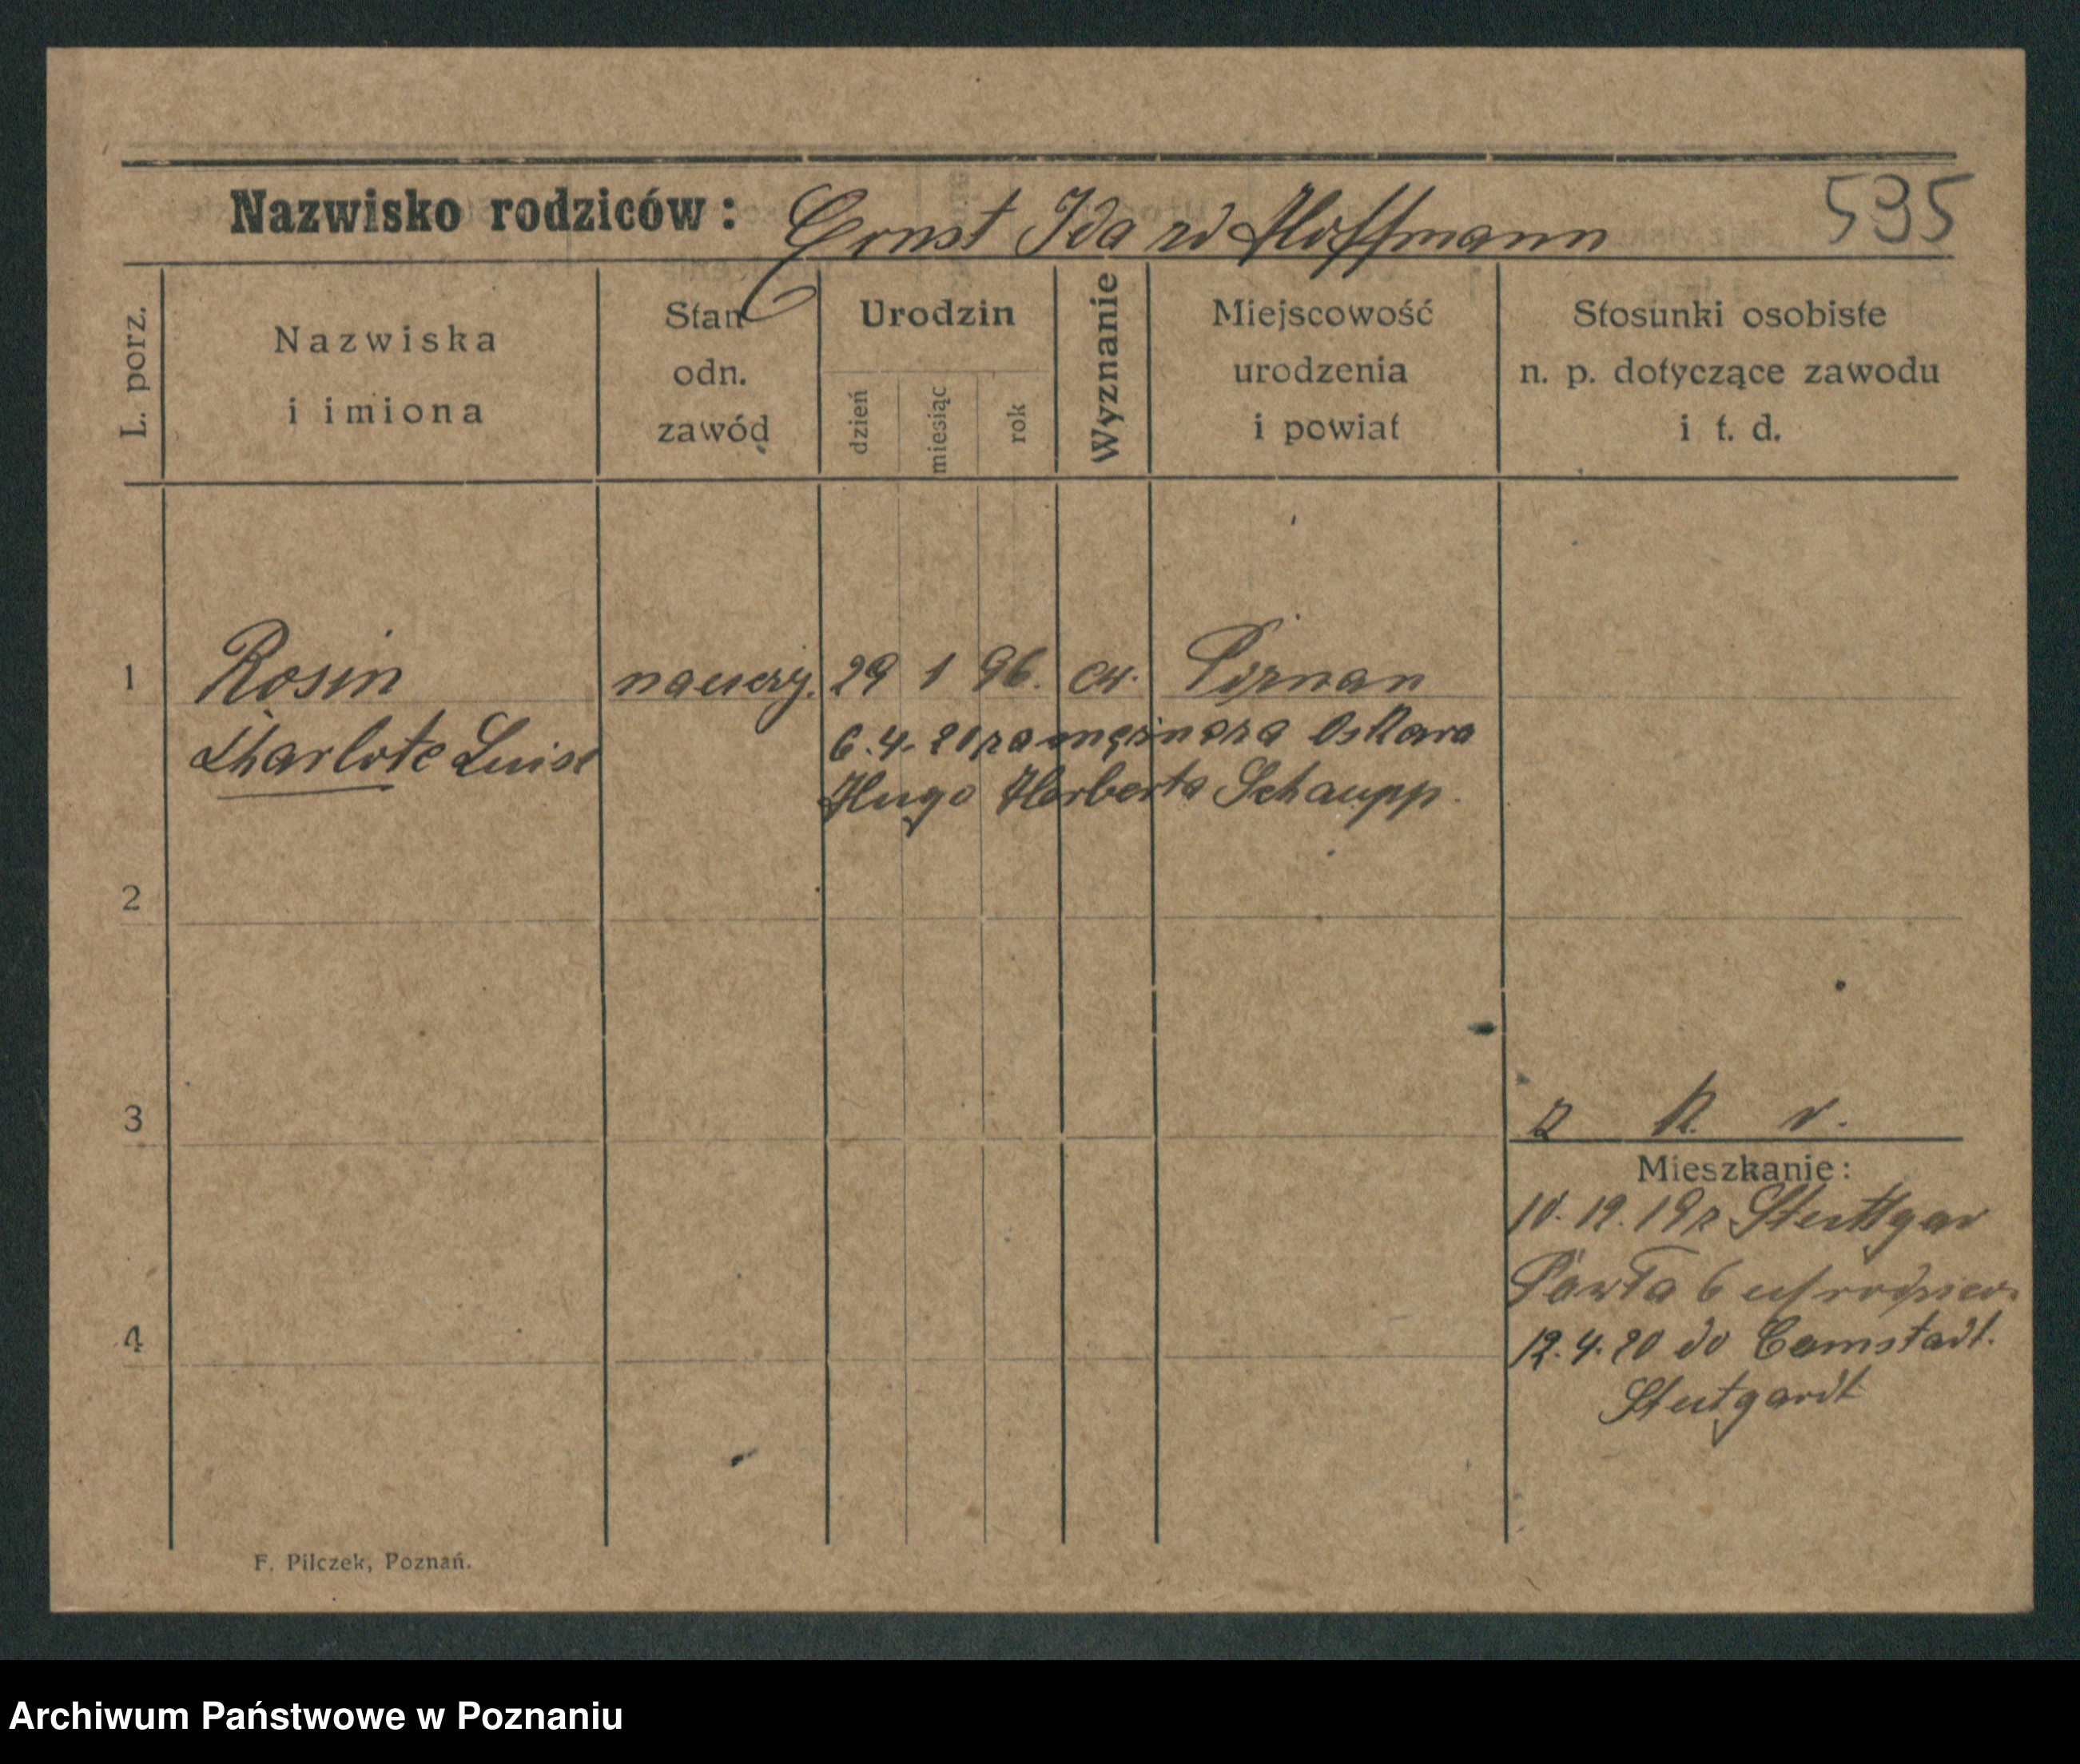 Nazwisko rodziców: Ernst Ida rd Hoffmann 535
L. porz.
Nazwiska i imiona
Stan odn. zawód
Urodzin
dzień miesiąc rok
Wyznanie
Miejscowość urodzenia i powiat
Stosunki osobiste n. p. dotyczące zawodu i t. d.
1 Rosin nauczy. 29 1 96. ew. Poznan
Charlote Luise 6.4.20 zamężna za Oskara
Hugo Herberta Schaupp.
2
3
Mieszkanie:
10.12.19 z Stuttgar
Pawła 6 u
12.4.20 do Camstadt.
4
Stutgardt
F. Pilczek, Poznań.
Archiwum Państwowe w Poznaniu